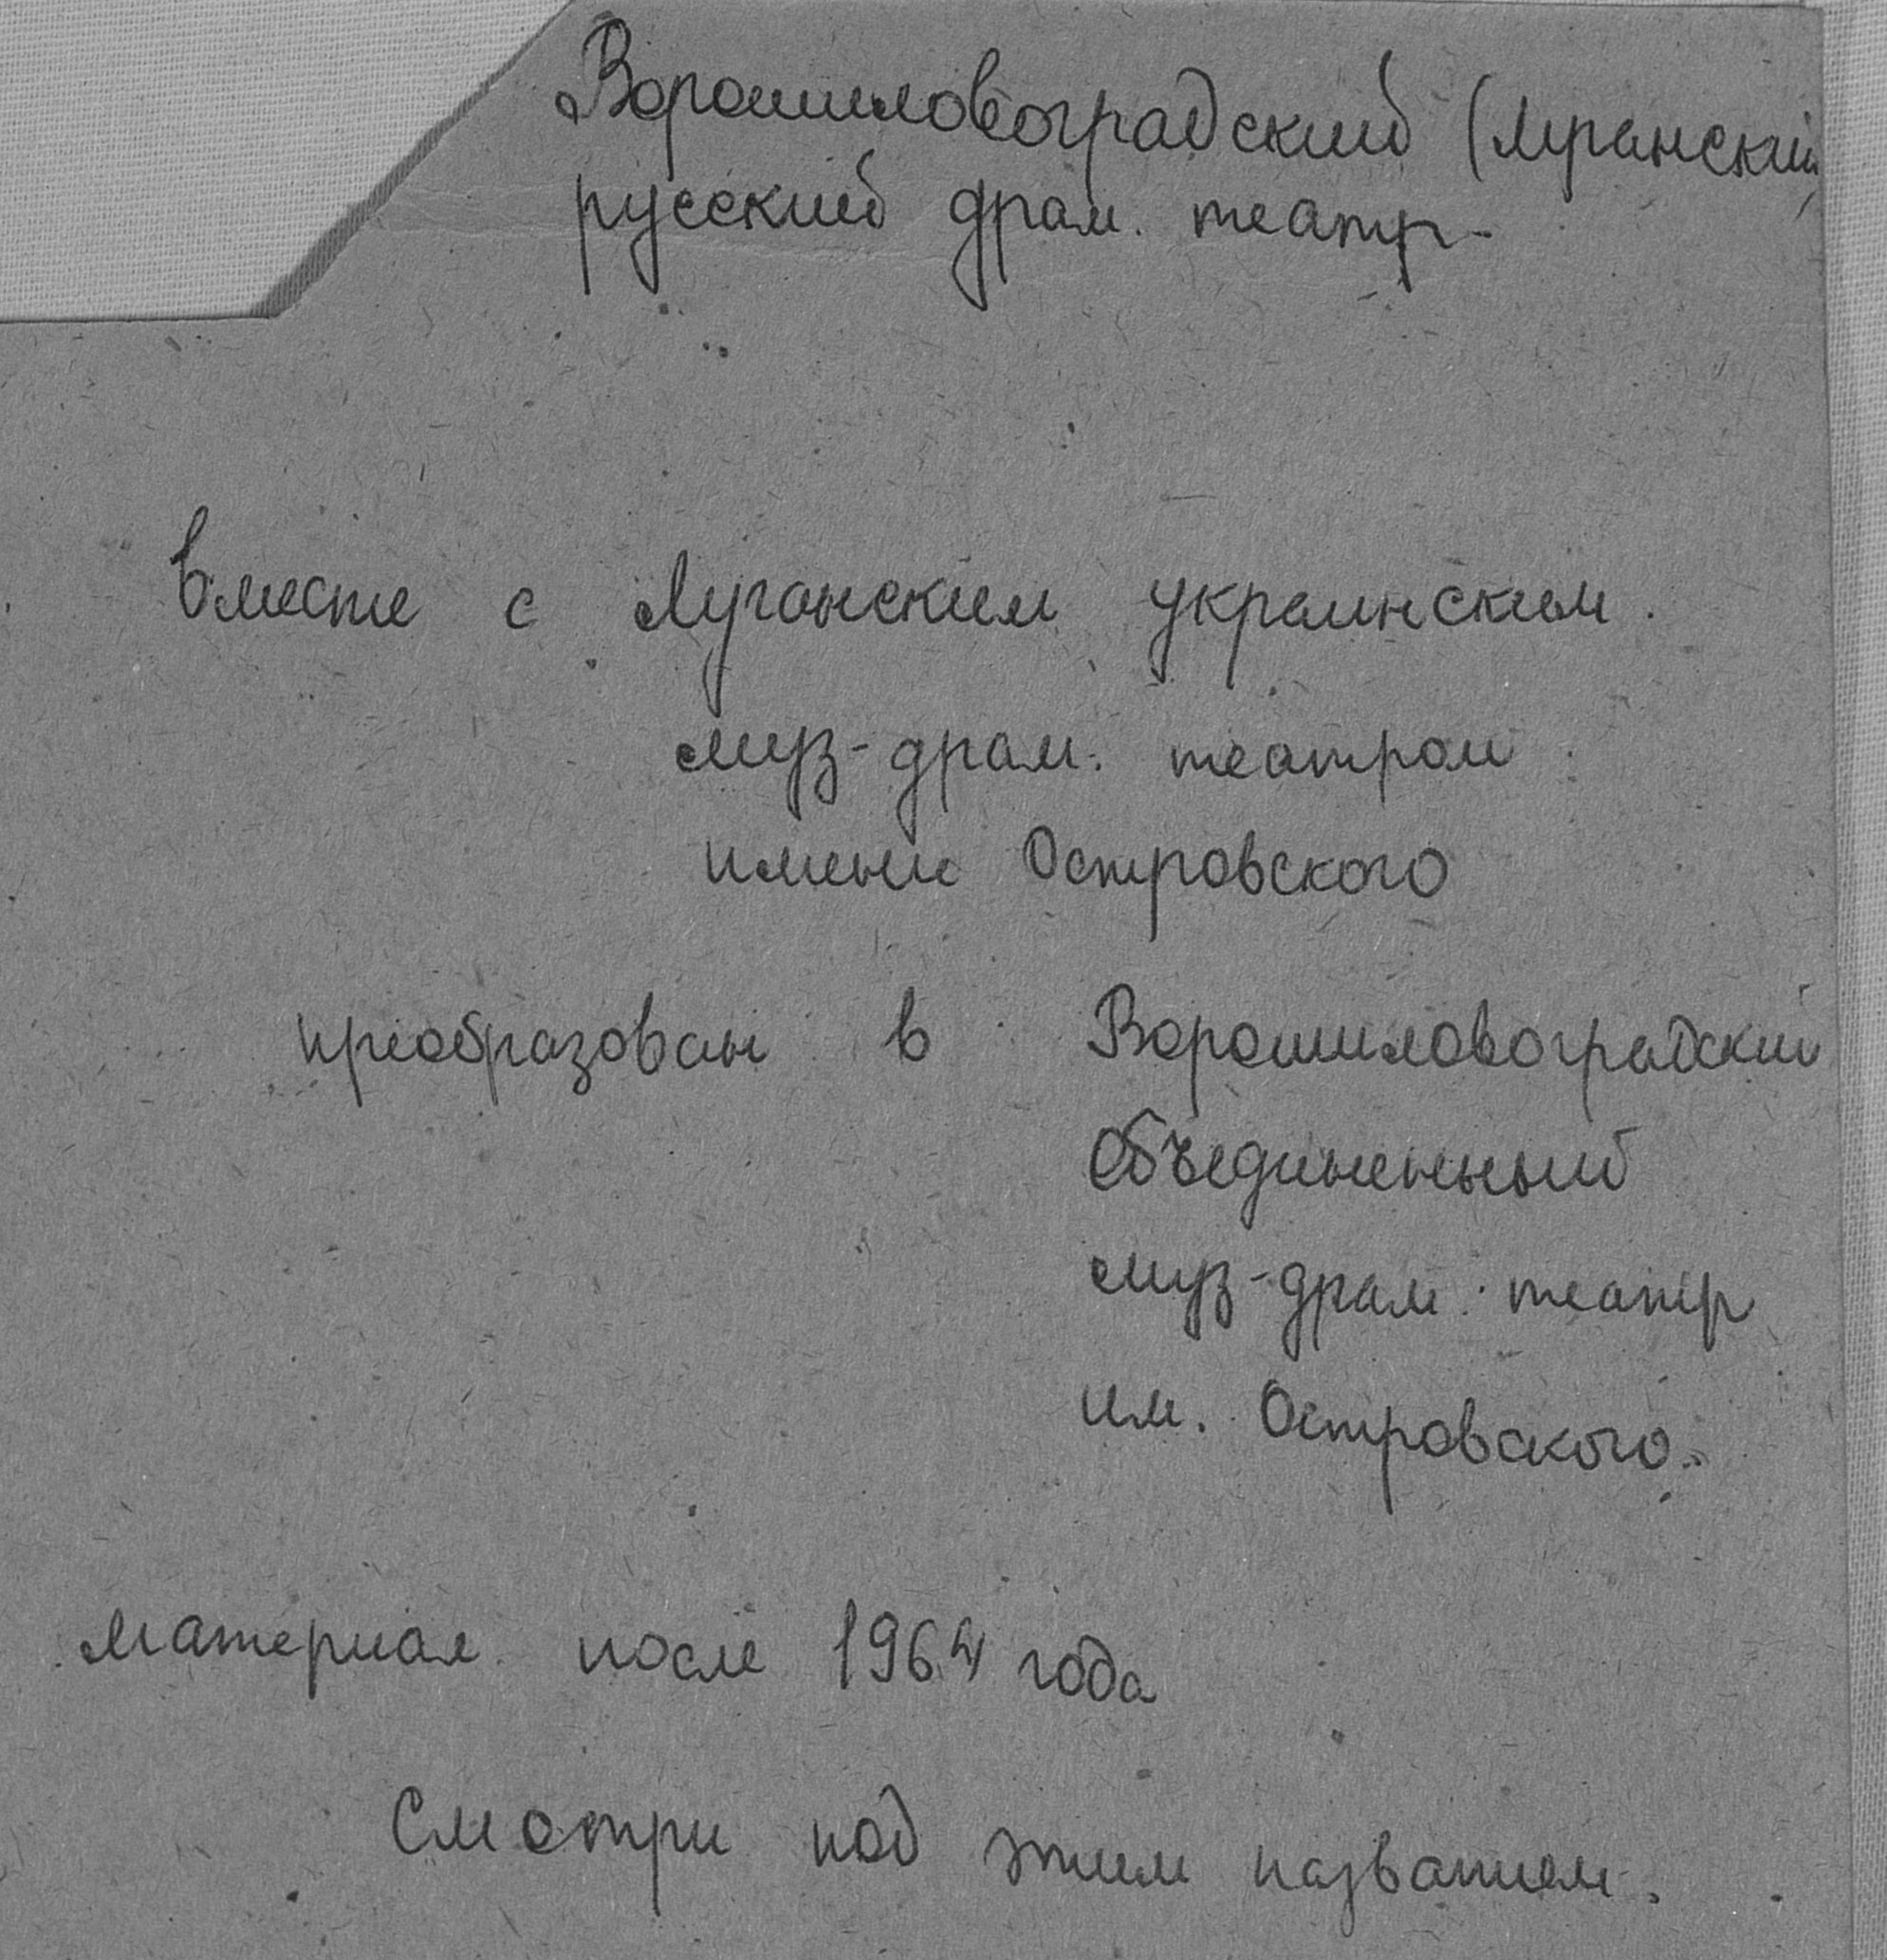 Ворошиловоградский (Луганский)
русский драм. театр-
Вместе с Луганским украинским
муз-драм. театром
имени Островского
преобразован в Ворошиловоградский
Объединенный
муз-драм. театр
им. Островского.
Материал после 1964 года
Смотри под этим названием.